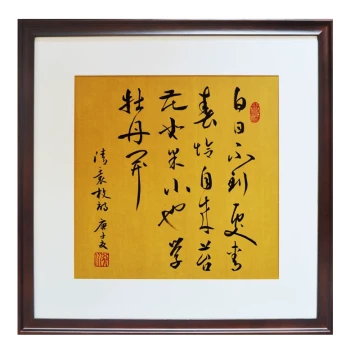 白日不到处青
春恰自来苔
花如米小也学
牡丹开
清袁枚诗 庚子文